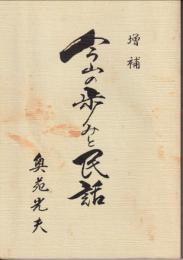 増補
今山の歩みと民話
奥苑光夫